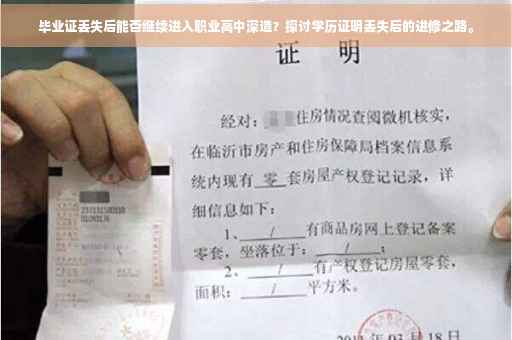 毕业证丢失后能否继续进入职业高中深造？探讨学历证明丢失后的进修之路。
证 明
经对：住房情况查阅微机核实，
在临沂市房产和住房保障局档案信息系
统内现有 零 套房屋产权登记记录，详
细信息如下：
1、 / 有商品房网上登记备案
零套，坐落位于： / ；
2、 / 有产权登记房屋零套，
面积： / 平方米。
03月18日